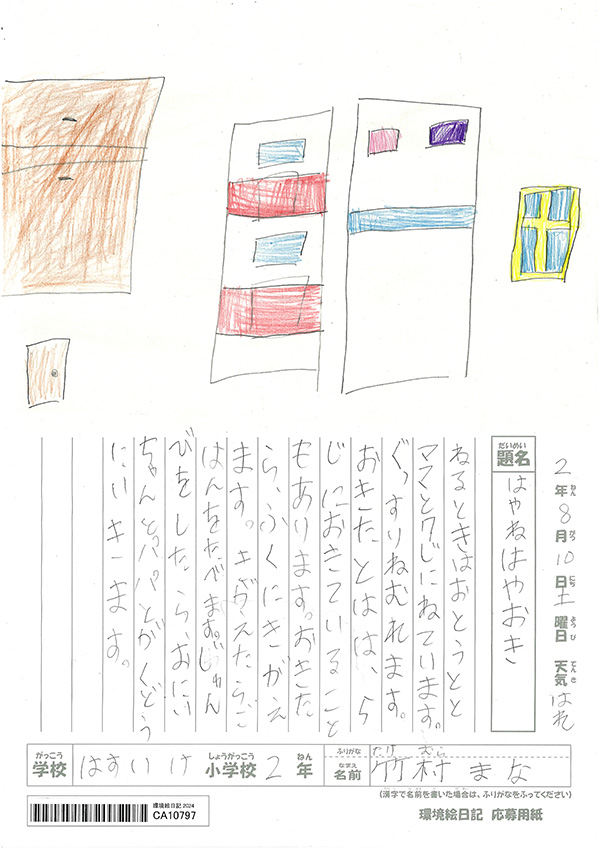 2年8月10日土曜日 天気はれ
ねん がつ にち ようび てんき
だいめい
題名
はやねはやおき
ねるときはおとうとと
ママと7じにねています。
ぐっすりねむれます。
おきたとはは、5
じにおきていること
もあります。おきた
ら、ふくにきがえ
ます。きがえたらご
はんをたべます。じゅん
びをしたら、おにい
ちゃんとパパとがくどう
にいきます。
がっこう しょうがっこう ねん
学校 はすいけ 小学校 2年
ふりがな たけ むら
なまえ
名前 竹村 まな
(漢字で名前を書いた場合は、ふりがなをふってください)
環境絵日記 2024
CA10797
環境絵日記 応募用紙